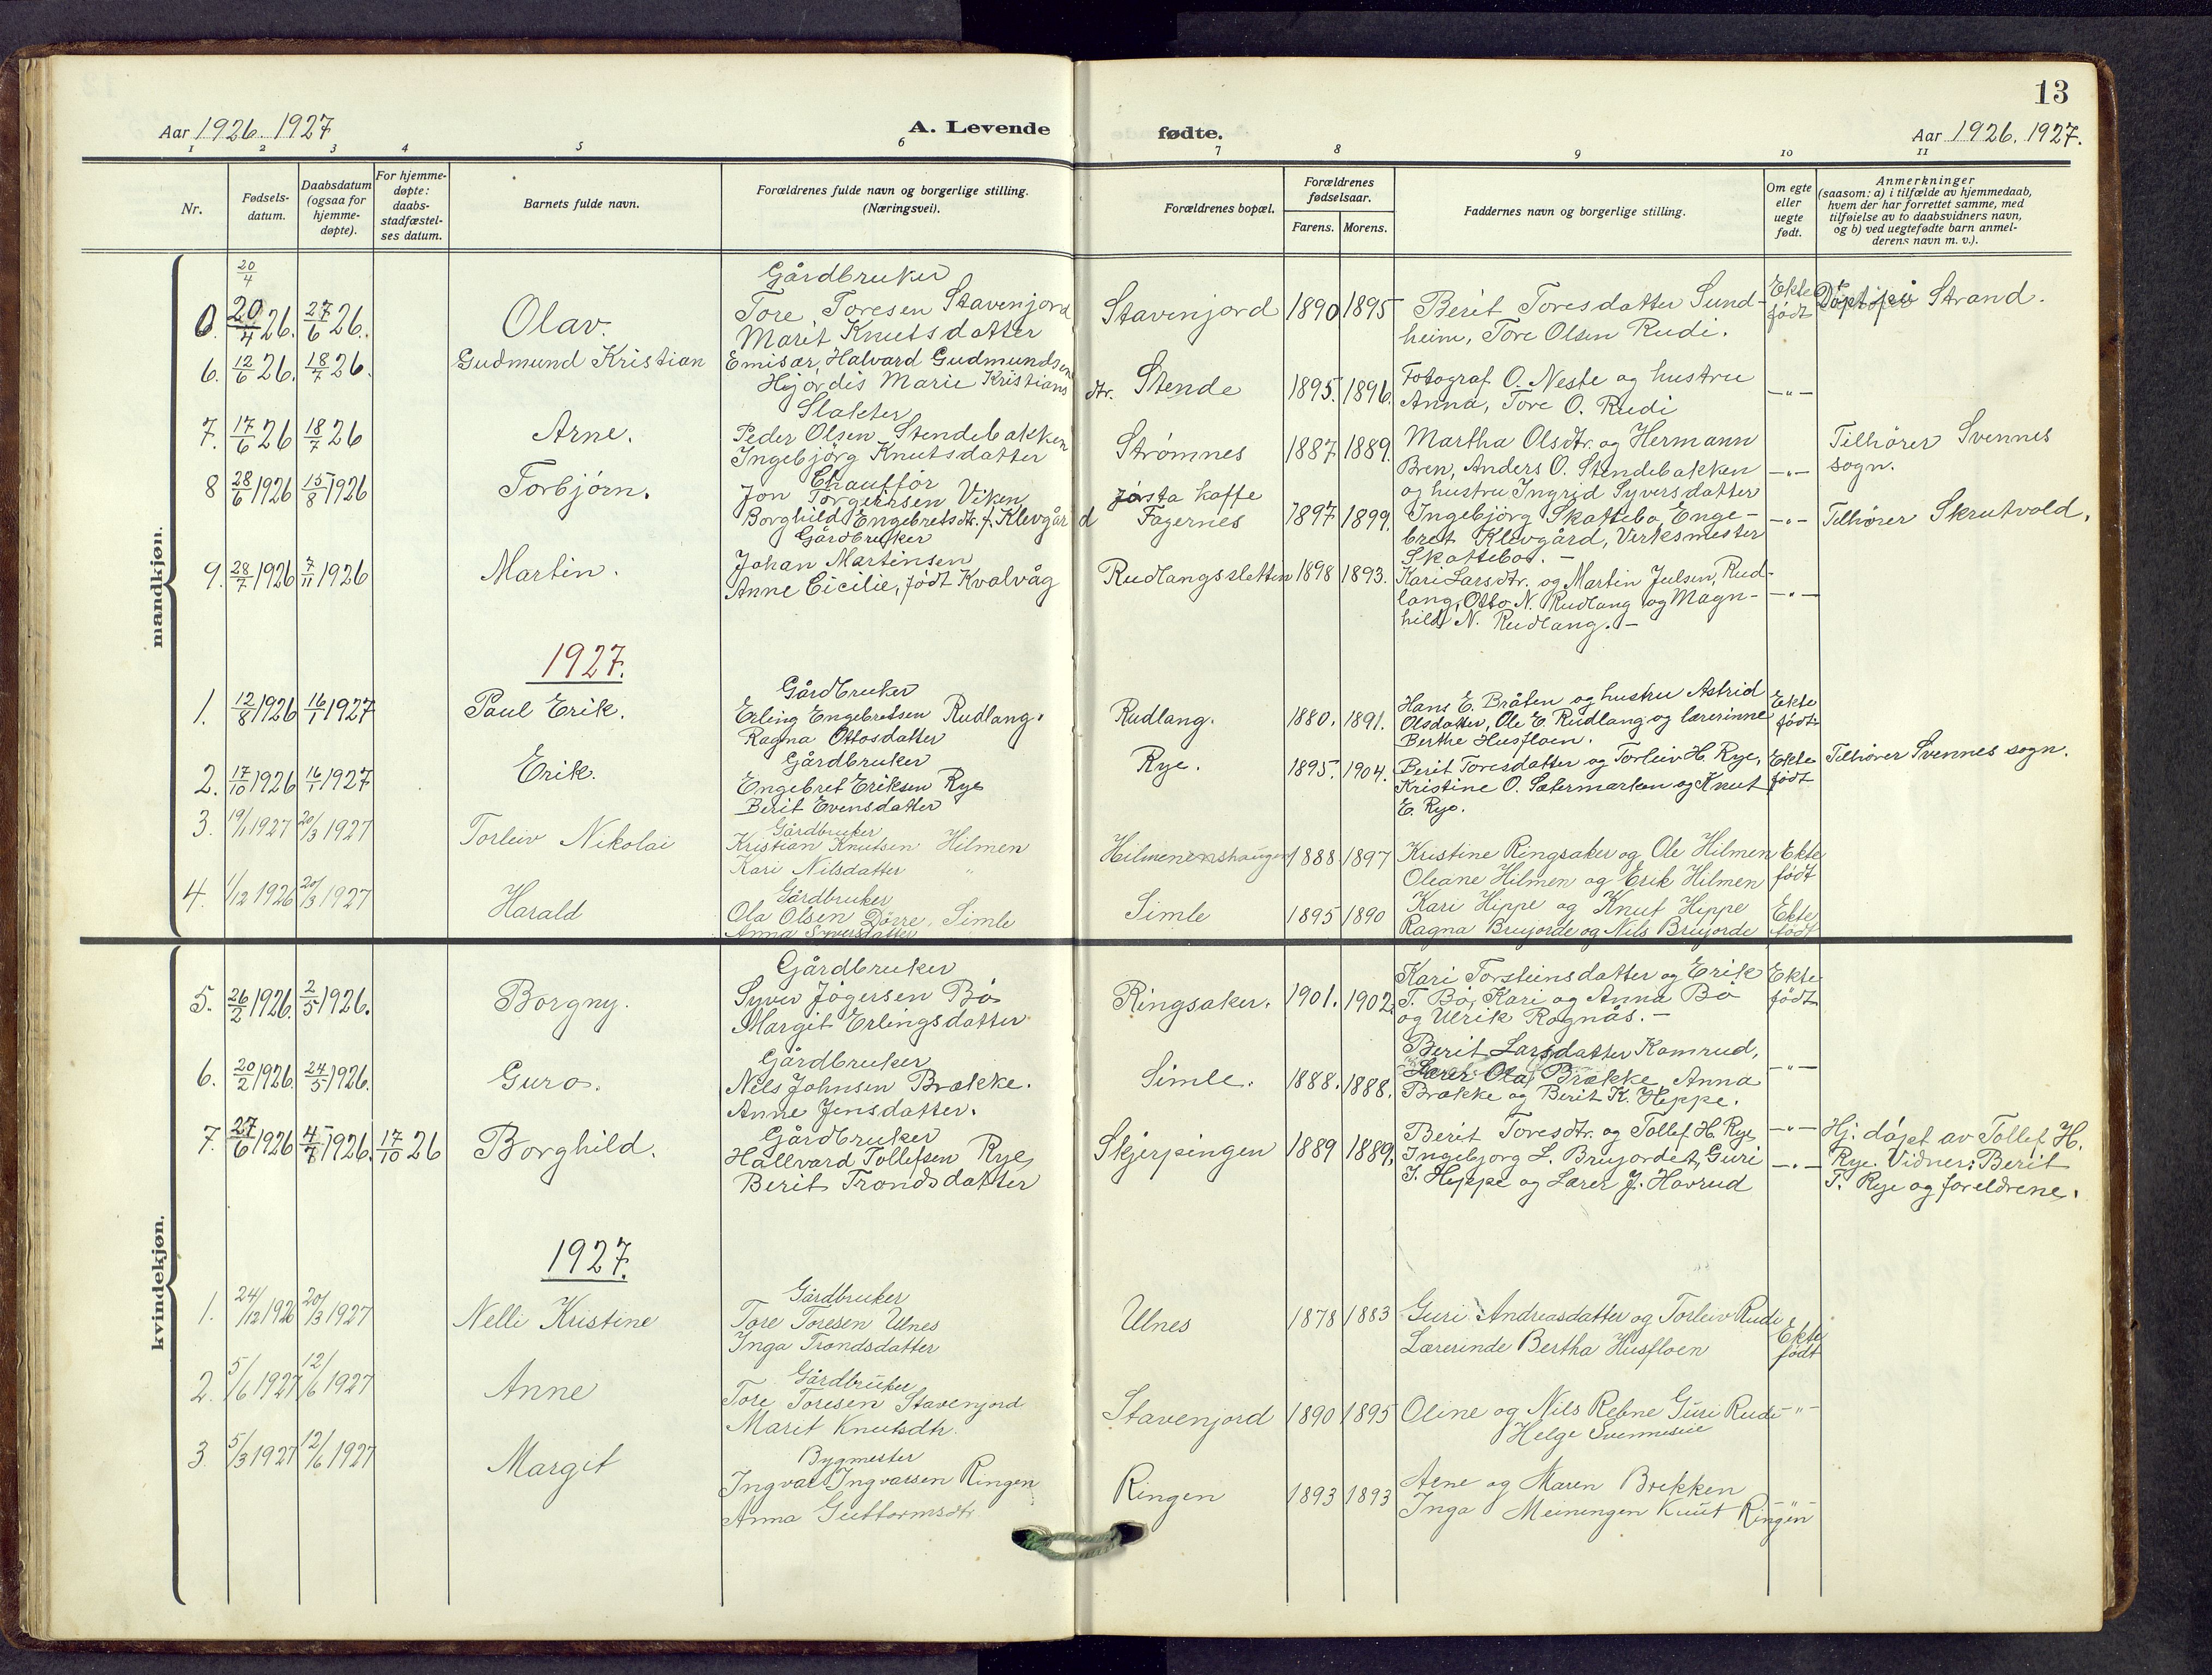 13
Aar 1926. 1927
A. Levende fødte.
Aar 1926. 1927.
1 2 3 4 5 6 7 8 9 10 11
Nr.
Fødsels-
datum.
Daabsdatum
(ogsaa for
hjemme-
døpte).
For hjemme-
døpte:
daabs-
stadfæstel-
ses datum.
Barnets fulde navn.
Forældrenes fulde navn og borgerlige stilling.
(Næringsvei).
Forældrenes bopæl.
Forældrenes
fødselsaar.
Farens. Morens.
Faddernes navn og borgerlige stilling.
Om egte
eller
uegte
født.
Anmerkninger
(saasom: a) i tilfælde av hjemmedaab,
hvem der har forrettet samme, med
tilføielse av to daabsvidners navn,
og b) ved uegtefødte barn anmel-
derens navn m. v.).
mandkjøn.
20/4
0. 20/4 26. 27/6 26. Olav.
Gårdbruker
Tore Toresen Stavenjord
Marit Knutsdatter
Stavenjord 1890 1895
Berit Toresdatter Sund-
heim, Tore Olsen Rudi.
Ekte
født
Strand.
6. 12/6 26. 18/7 26. Gudmund Kristian
Emisær, Halvard Gudmundsen
Hjørdis Marie Kristians
dtr. Stende 1895. 1896.
Fotograf O. Neste og hustru
Anna, Tore O. Rudi
—"—
7. 17/6 26 18/7 26 Arne.
Slakter
Peder Olsen Stendebakken
Ingebjørg Knutsdatter
Strømnes 1887 1889.
Martha Olsdtr. og Hermann
Bren, Anders O. Stendebakken
og hustru Ingrid Syversdatter
—"—
Tilhører Svennes
sogn.
8 28/6 1926 15/8 1926 Torbjørn.
Chauffør
Jon Torgersen Viken
Borghild Engebretsdtr. f. Klevgård
kaffe
Fagernes 1897 1899.
Ingebjörg Skattebo, Enge-
bret Klevgård, Verksmester
Skattebo. —
—"—
Tilhører Skrutvold.
9. 28/7 1926 7/11 1926 Martin.
Gårdbruker
Johan Martinsen
Anne Cicilie, født Kvalvåg
Rudlangssletten 1898 1893.
Kari Larsdtr. og Martin Julsen, Rud-
lang, Otto N. Rudlang og Magn-
hild N. Rudlang. —
—"—
1927.
1. 12/8 1926 16/1 1927 Paul Erik.
Gårdbruker
Erling Engebretsen Rudlang.
Ragna Ottosdatter
Rudlang. 1880. 1891.
Hans E. Bråten og hustru Astrid
Olsdatter, Ole E. Rudlang og lærerinne
Berthe Husfloen.
Ekte
født
2. 17/10 1926 16/1 1927 Erik.
Gårdbruker
Engebret Eriksen Rye
Berit Evensdatter
Rye. 1895. 1904.
Berit Toresdatter og Torleiv H. Rye,
Kristine O. Sætermarken og Knut
E. Rye.
Ekte
født
Tilhører Svennes sogn.
3. 19/1 1927 20/3 1927 Torleiv Nikolai
Gårdbruker
Kristian Knutsen Hilmen
Kari Nilsdatter "
Hilmenenshaugen 1888 1897
Kristine Ringsaker og Ole Hilmen
Oleane Hilmen og Erik Hilmen
Ekte
født
4. 1/12 1926 20/3 1927 Harald
Gårdbruker
Ola Olsen Dörre, Simle
Anna Syversdatter
Simle 1895 1890
Kari Hippe og Knut Hippe
Ragna Brujorde og Nils Brujorde
Ekte
født
kvindekjøn.
5. 26/2 1926. 2/5 1926. Borgny.
Gårdbruker
Syver Jögersen Bö
Margit Erlingsdatter
Ringsaker. 1901. 1902.
Kari Torsteinsdatter og Erik
T. Bö, Kari og Anna Bö
og Ulrik Rognås. —
Ekte
født
6. 20/2 1926. 24/5 1926. Guro.
Gårdbruker
Nils Johnsen Brække.
Anne Jensdatter.
Simle. 1888. 1888.
Berit Larsdatter Kamrud,
Lærer Ola Brække, Anna
Brække og Berit K. Heppe.
—"—
7. 27/6 1926 4/7 1926. 17/10 26 Borghild.
Gårdbruker
Hallvard Tollefsen Rye
Berit Trondsdatter
Skjerpingen 1889 1889.
Berit Toresdtr. og Tollef H. Rye
Ingebjørg L. Brujordet, Guri
I. Heppe og Lærer J. Havrud
—"—
—"—
Hj. døpt av Tollef H.
Rye. Vidner: Berit
T. Rye og foreldrene.
1927.
1. 24/12 1926 20/3 1927 Nelli Kristine
Gårdbruker
Tore Toresen Ulnes
Inga Trondsdatter
Ulnes 1878 1883
Guri Andreasdatter og Torleiv Rudi
Lærerinde Bertha Husfloen
Ekte
født
2. 5/6 1927 12/6 1927 Anne
Gårdbruker
Tore Toresen Stavenjord
Marit Knutsdtr.
Stavenjord 1890 1895
Oline og Nils Rebne Guri Rudi
Helge
—"—
3. 5/3 1927 12/6 1927 Margit
Bygmester
Ingvar Ingvarsen Ringen
Anna Guttormsdtr
Ringen 1893 1893
Arne og Maren Brekken
Inga Meiningen Knut Ringen
—"—